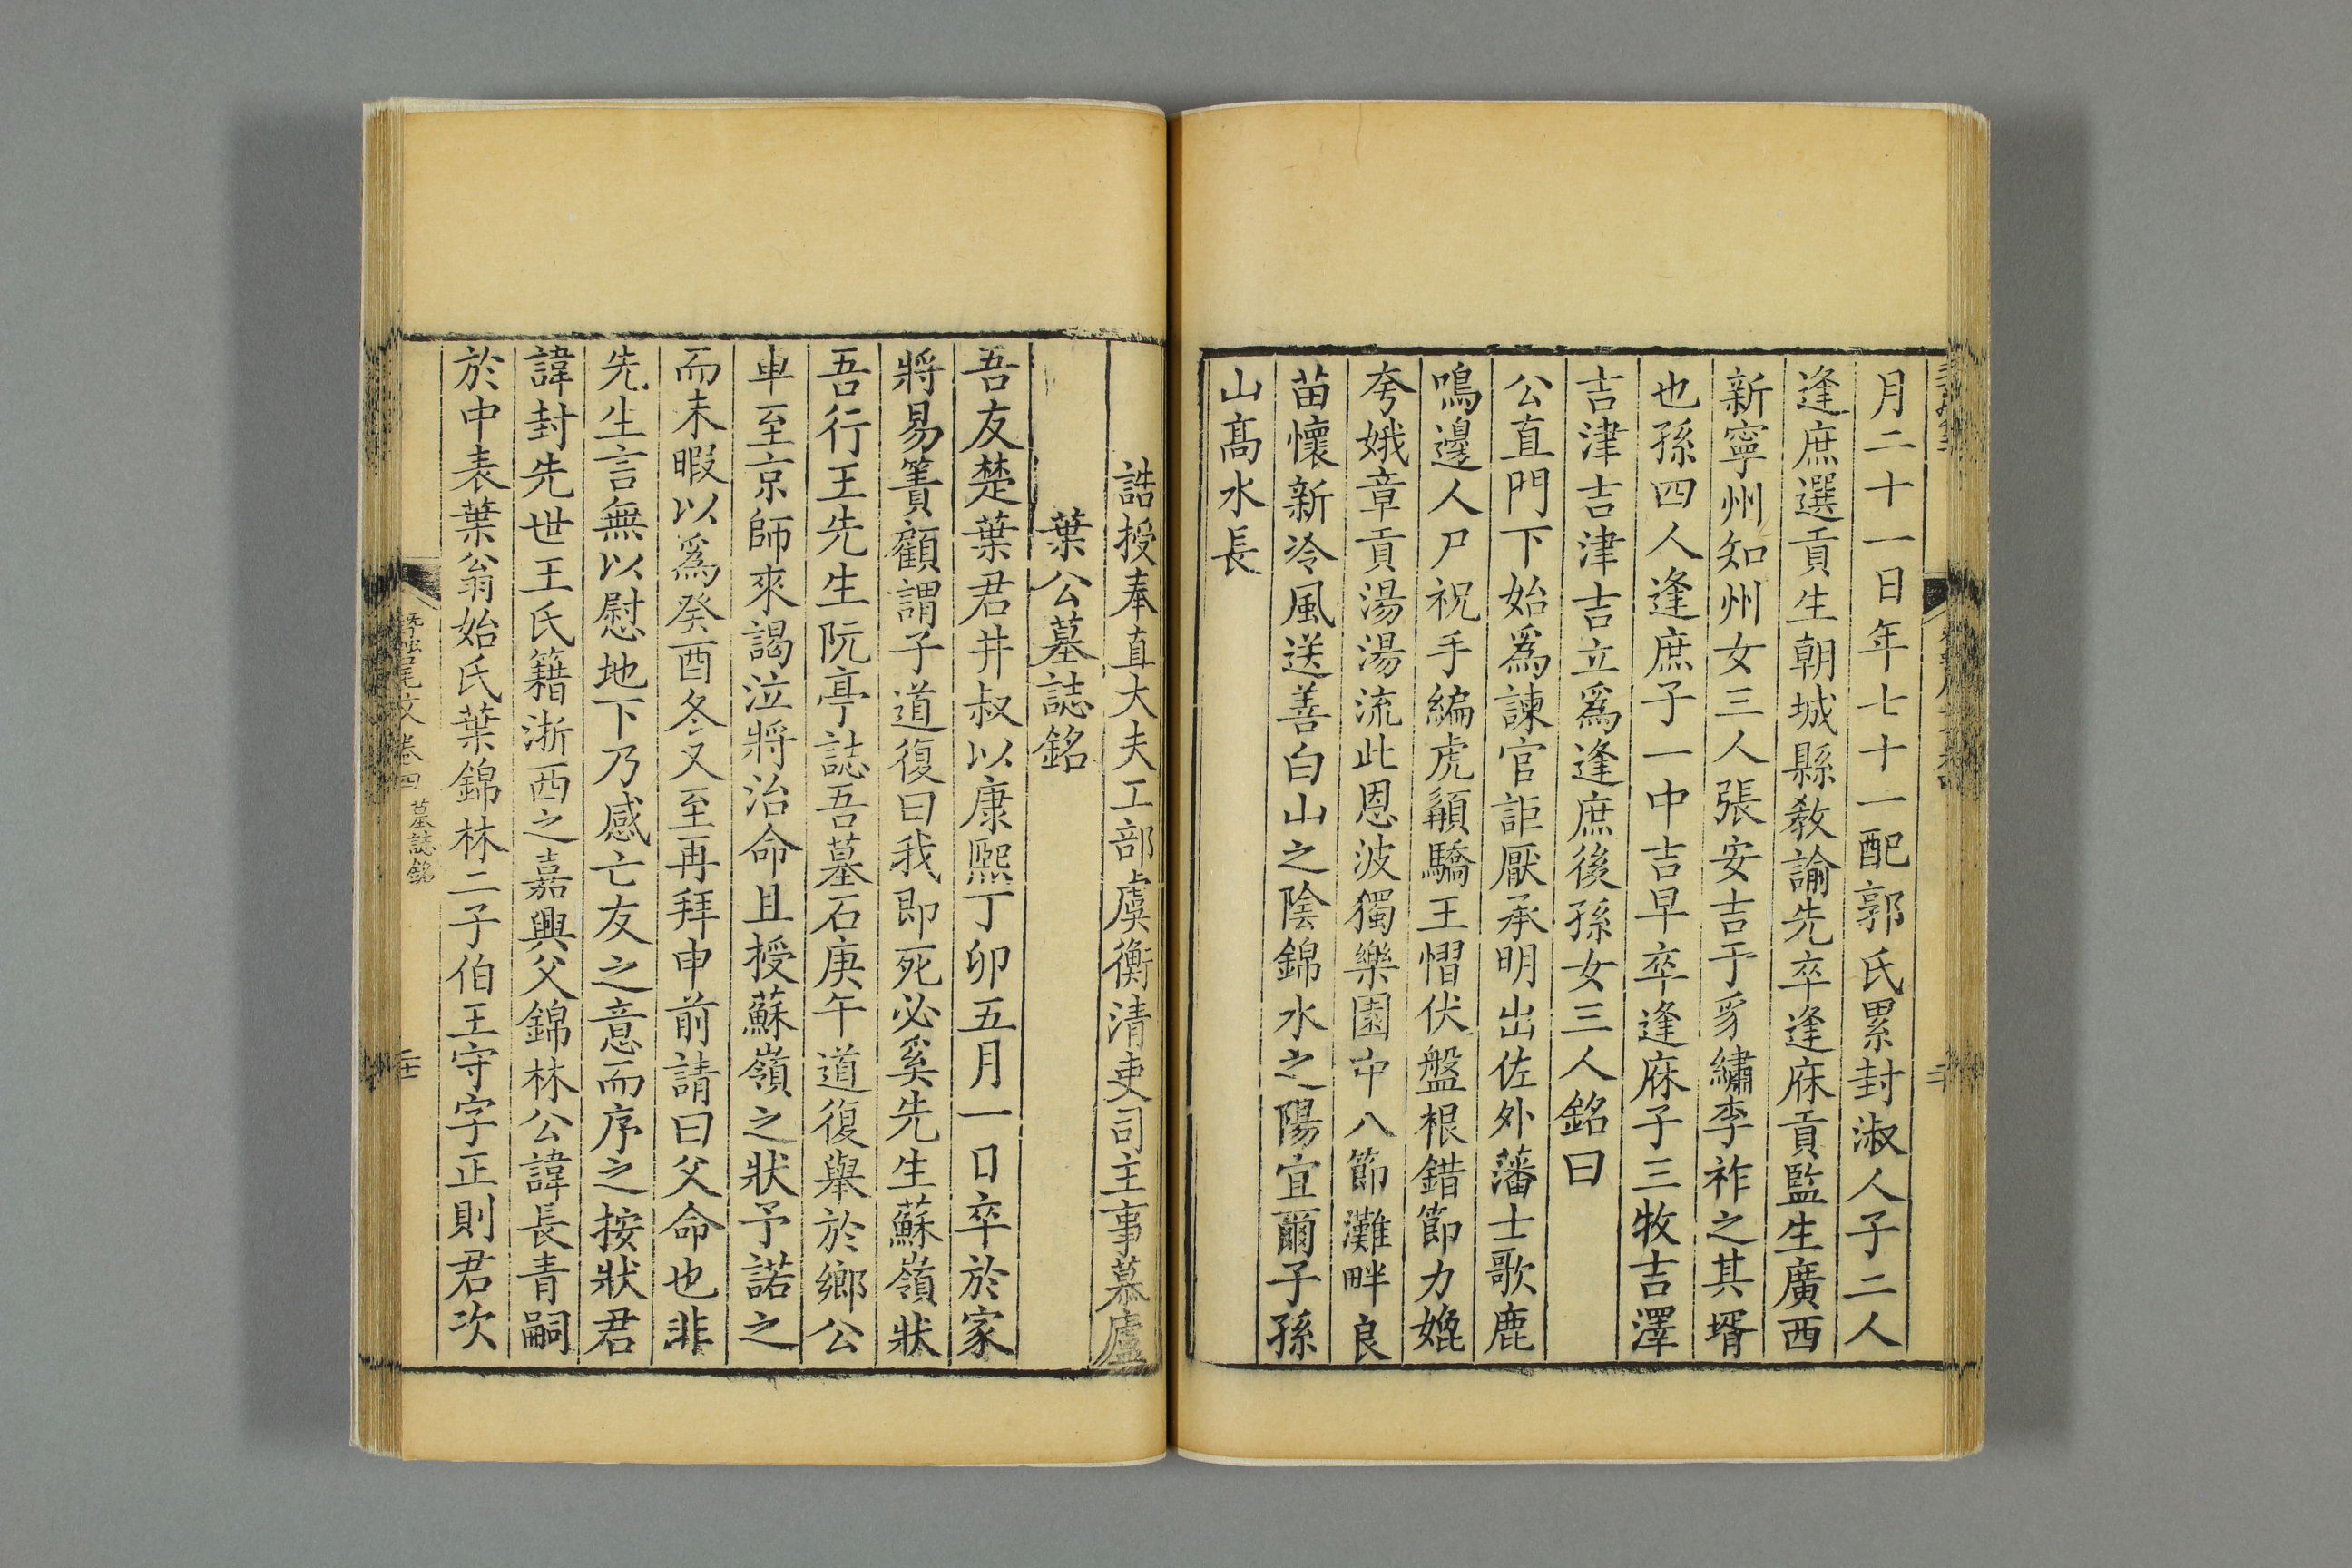 月二十一日年七十一配郭氏累封淑人子二人
逢庶選貢生朝城縣敎諭先卒逢庥貢監生廣西
新寧州知州女三人張安吉于豸繡李祚之其壻
也孫四人逢庶子一中吉早卒逢庥子三牧吉澤
吉津吉津吉立爲逢庶後孫女三人銘曰
公直門下始爲諫官詎厭承明出佐外藩士歌鹿
鳴邊人尸祝手編虎顙驕王慴伏盤根錯節力媲
夸娥章貢湯湯流此恩波獨樂園中八節灘畔良
苗懷新冷風送善白山之陰錦水之陽宜爾子孫
山髙水長
誥授奉直大夫工部虞衡清吏司主事慕廬
葉公墓誌銘
吾友楚葉君井叔以康熙丁卯五月一日卒於家
將易簀顧謂子道復曰我即死必奚先生蘇嶺狀
吾行王先生阮亭誌吾墓石庚午道復舉於鄉公
車至京師來謁泣將治命且授蘇嶺之狀予諾之
而未暇以爲癸酉冬又至再拜申前請曰父命也非
先生言無以慰地下乃感亡友之意而序之按狀君
諱封先世王氏籍浙西之嘉興父錦林公諱長青嗣
於中表葉翁始氏葉錦林二子伯王守字正則君次
蠶尾文卷四 墓誌銘 二十一